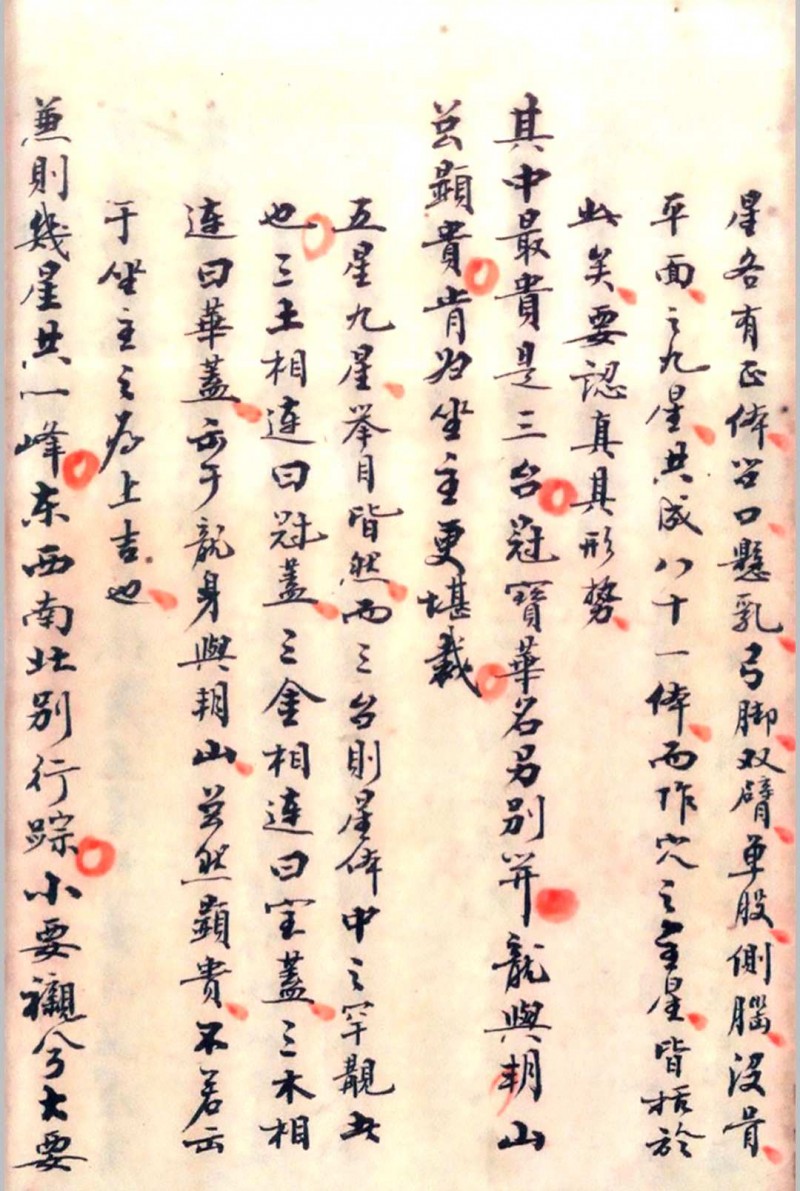 星各有正体谷口懸乳弓脚双臂单股側腦没骨
平面之九星共成八十一体而作穴之主星皆括於
此矣要認真其形勢
其中最貴是三台冠寳華名另别并龍與朝山
並顕貴肯为坐主更堪裁
五星九星举目皆然而三台則星体中之罕覯者
也三土相連曰冠蓋三金相連曰宝蓋三木相
连曰華蓋出于龍身與朝山並然顕貴不若出
于坐主之為上吉也
兼則幾星共一峰东西南北别行踪小要襯兮大要